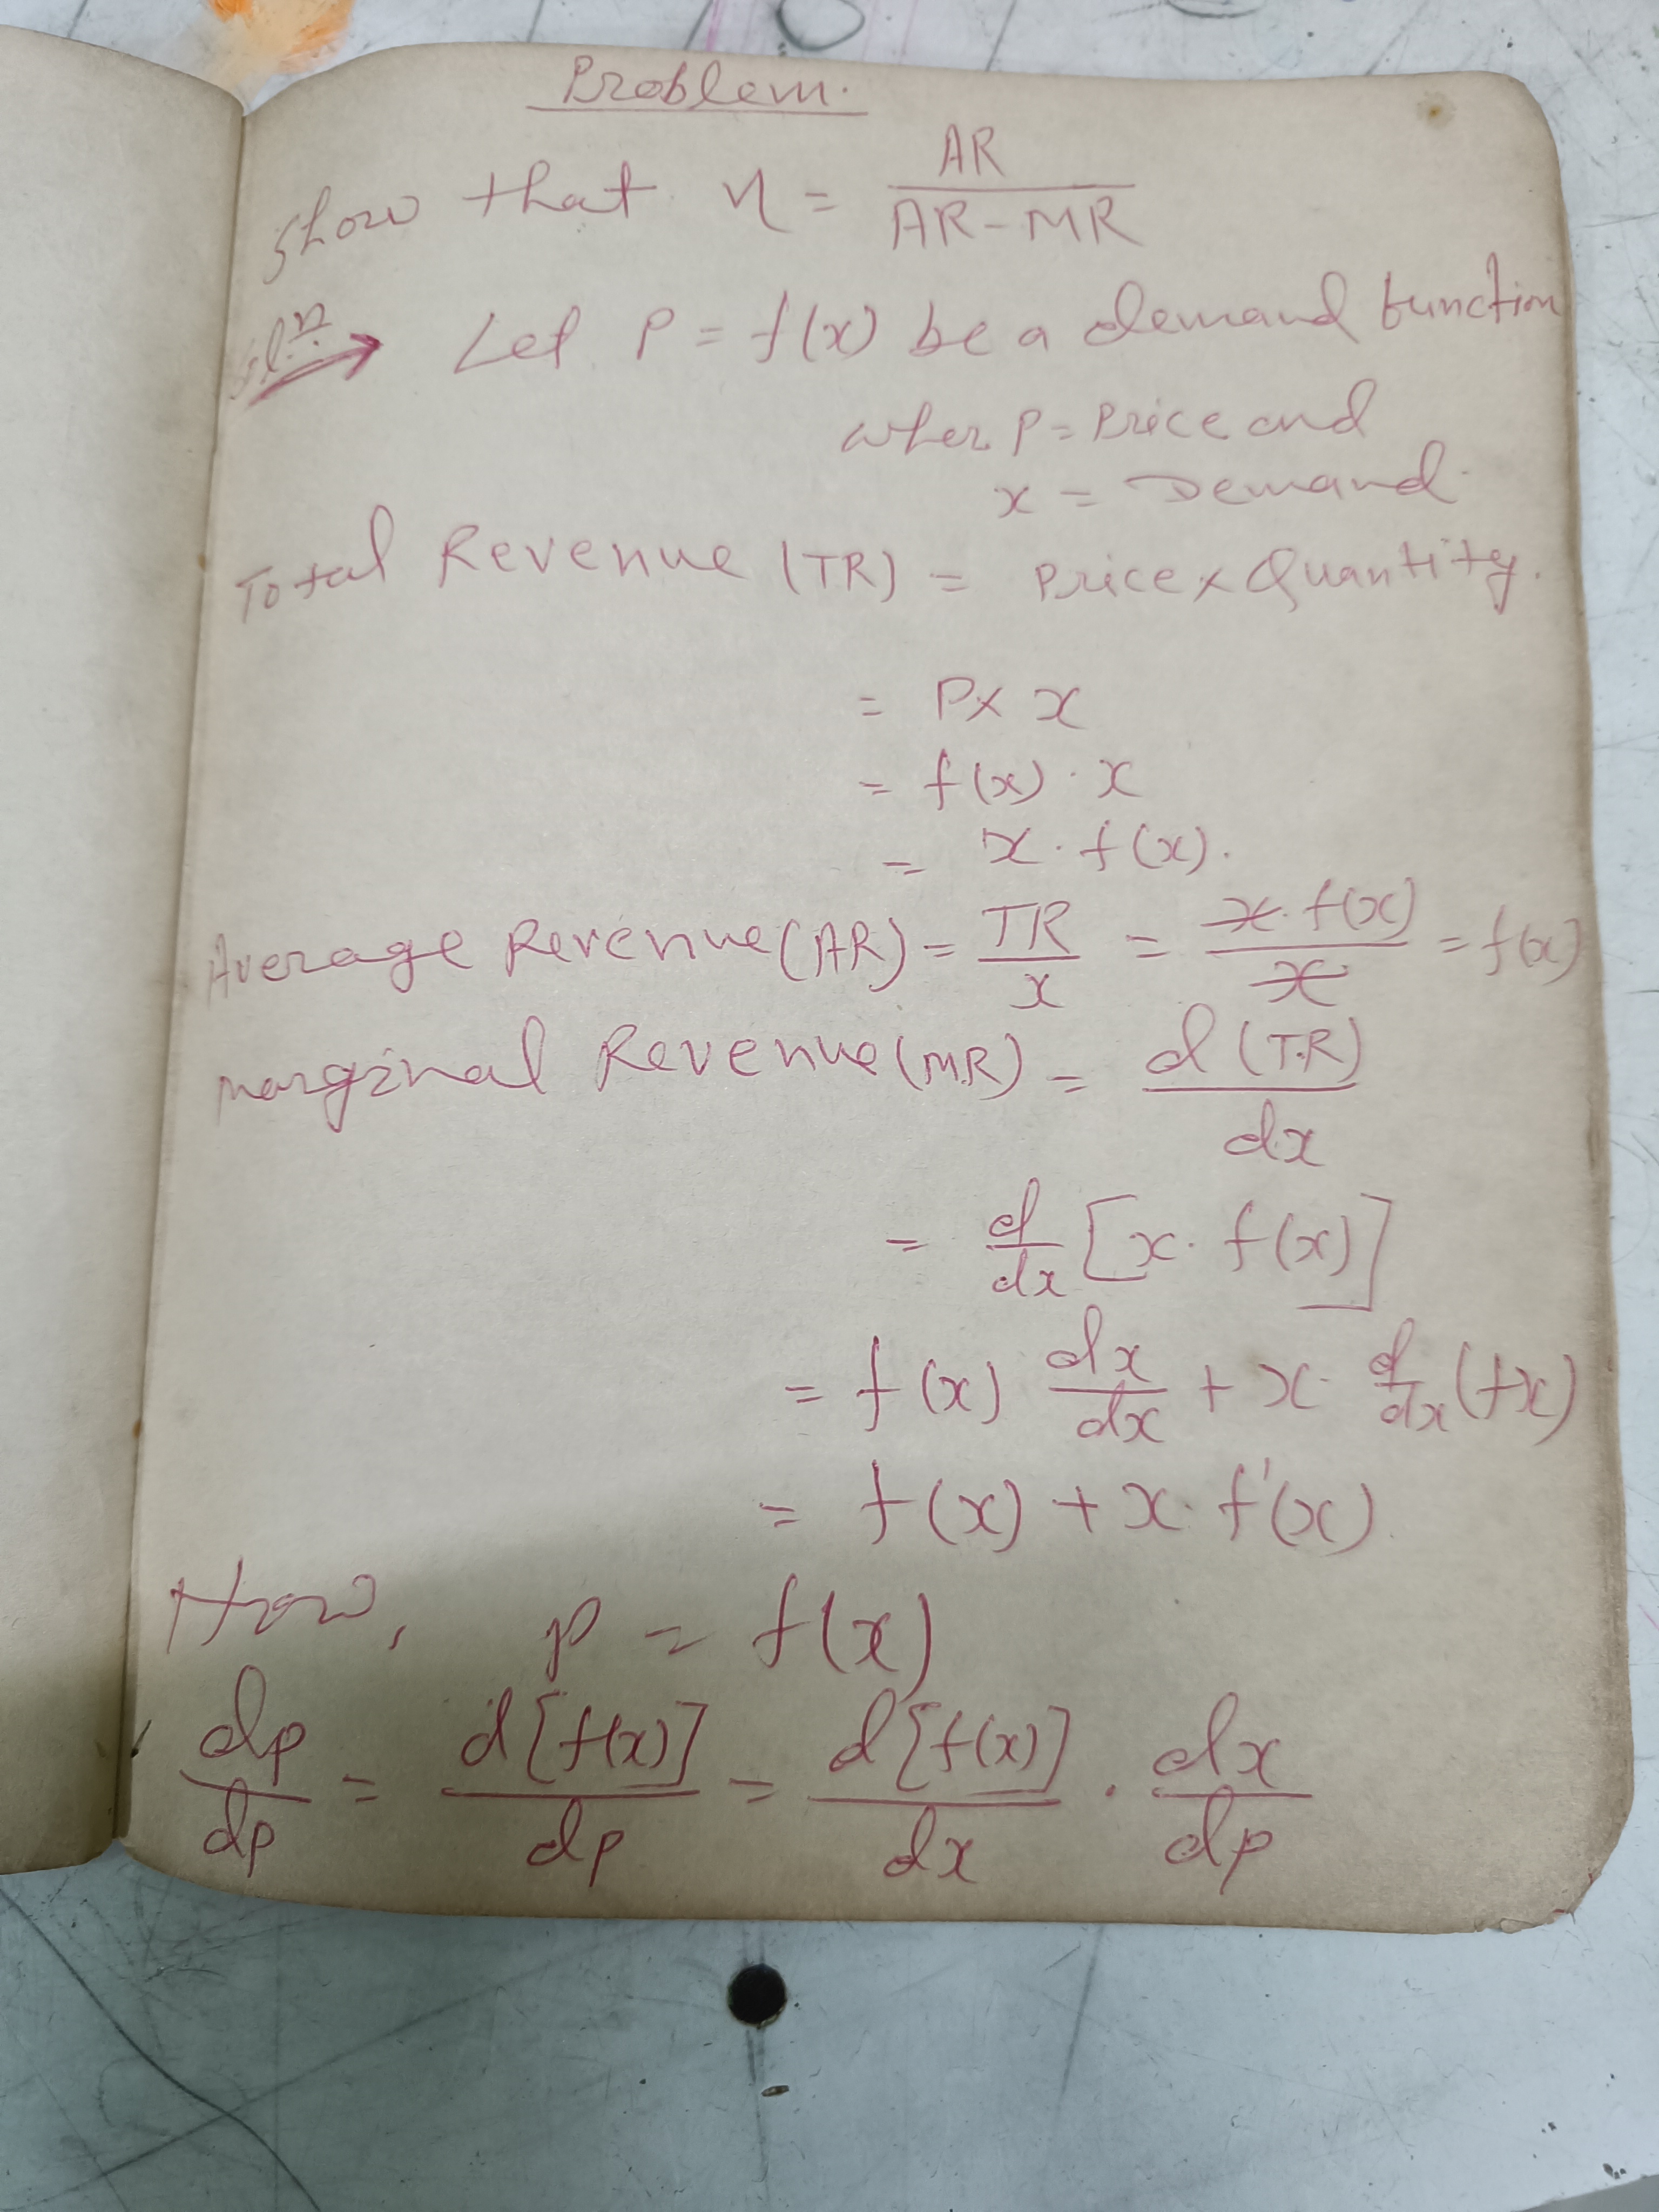 Problem.
Show that η = AR / AR - MR
Solⁿ: → Let P = f(x) be a demand function
wher P = Price and
x = Demand.
Total Revenue (TR) = Price × Quantity.
= P × x
= f(x) · x
= x · f(x).
Average Revenue (AR) = TR / x = x · f(x) / x = f(x)
Marginal Revenue (MR) = d (T.R) / dx
= d/dx [x · f(x)]
= f(x) dx/dx + x · d/dx (fx)
= f(x) + x · f'(x)
Now, p = f(x)
dp/dp = d[f(x)]/dp = d[f(x)]/dx · dx/dp